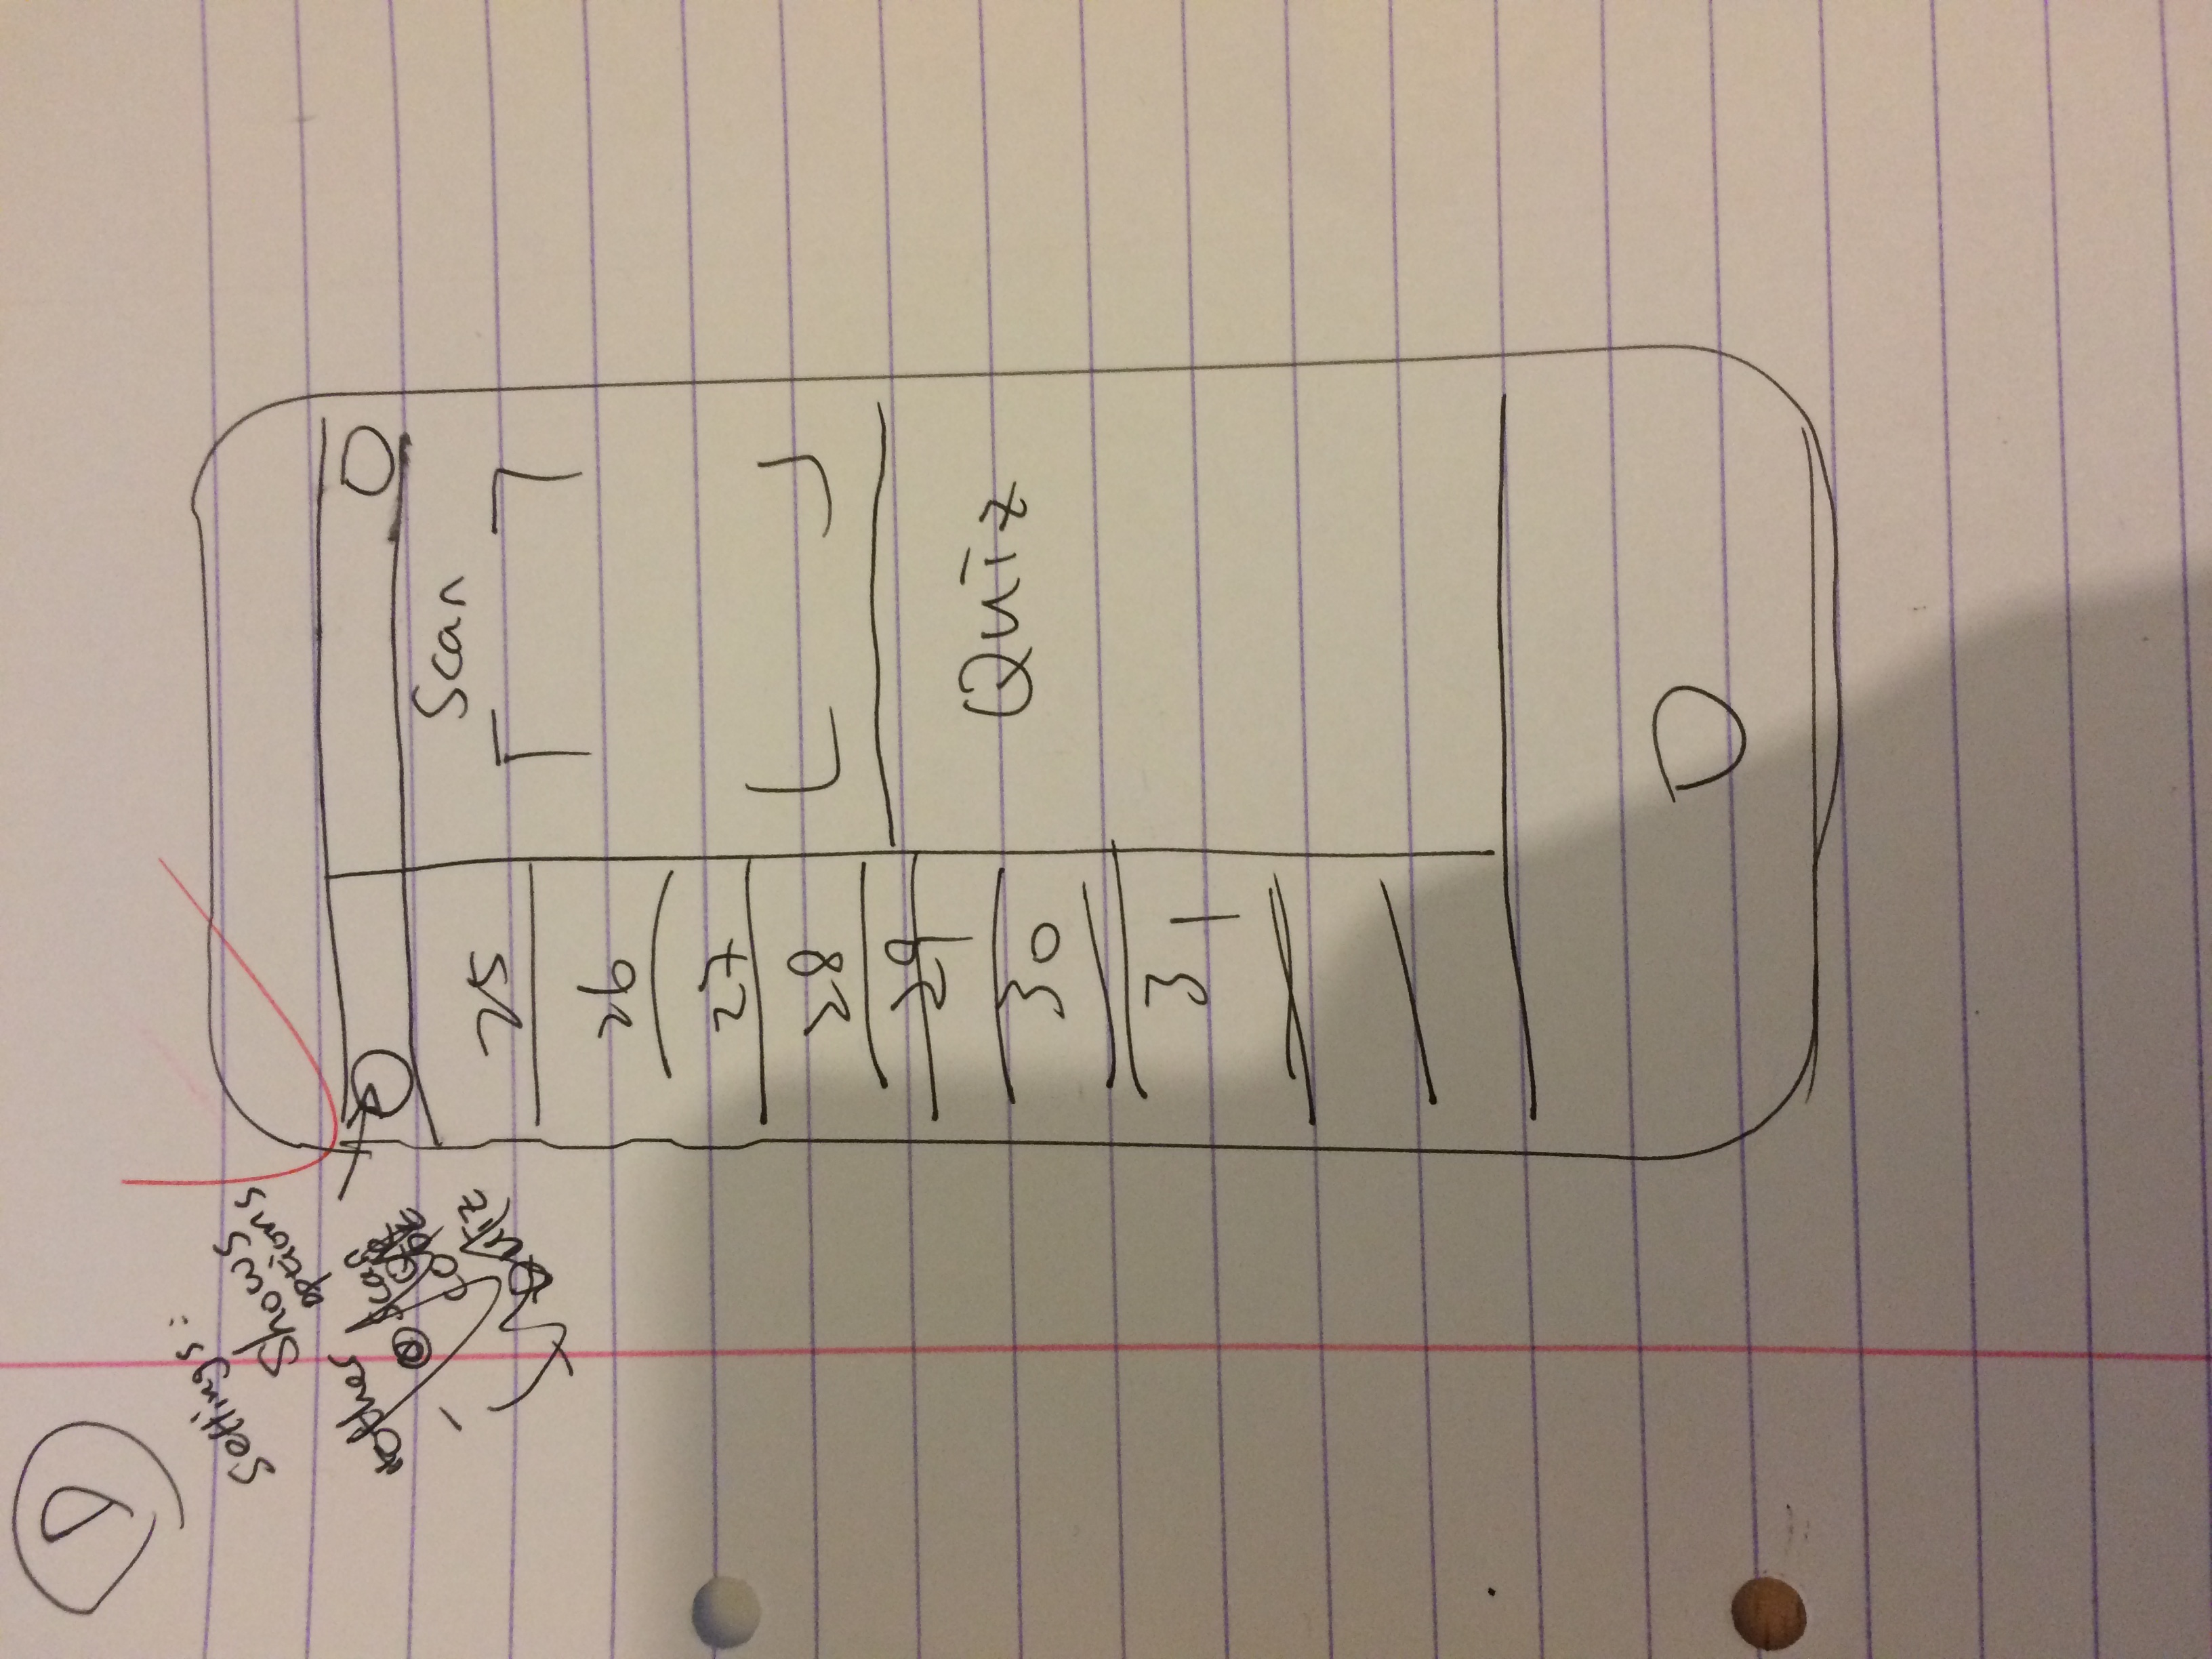 D
Settings:
Shows
options
other
scan
QR
code
Quiz
25
26
27
28
29
30
31
Scan
Quiz